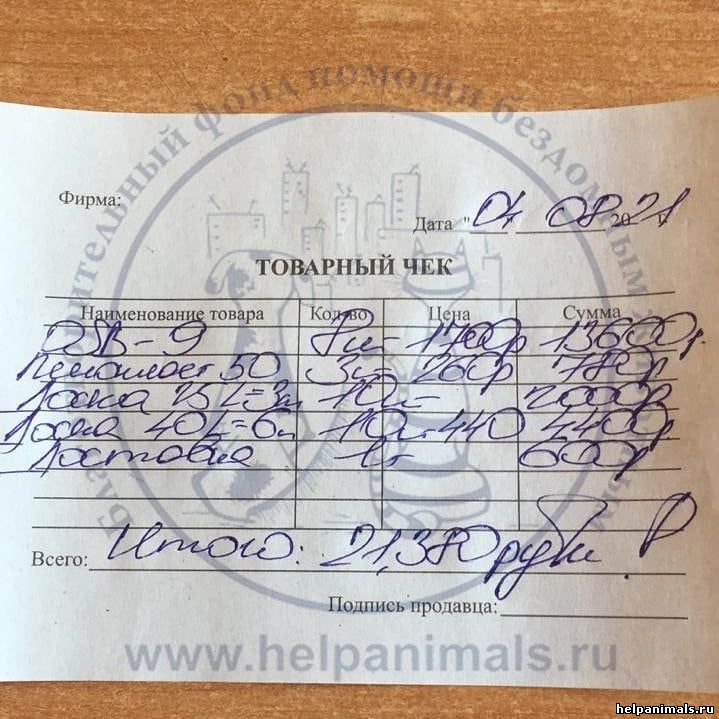 Благотворительный фонд помощи бездомным животным
Фирма:
Дата "04" 08 2021 г.
ТОВАРНЫЙ ЧЕК
Наименование товара Кол-во Цена Сумма
OSB-9 8л- 1700р 13600р.
Пенопласт 50 3л- 260р 780р
Доска 25 L=3м 10л- 2000р
Доска 40 L=6м 10л- 440 4400р
Доставка 1- 600р
Всего: Итого: 21,380 рубл.
Подпись продавца:
www.helpanimals.ru
helpanimals.ru